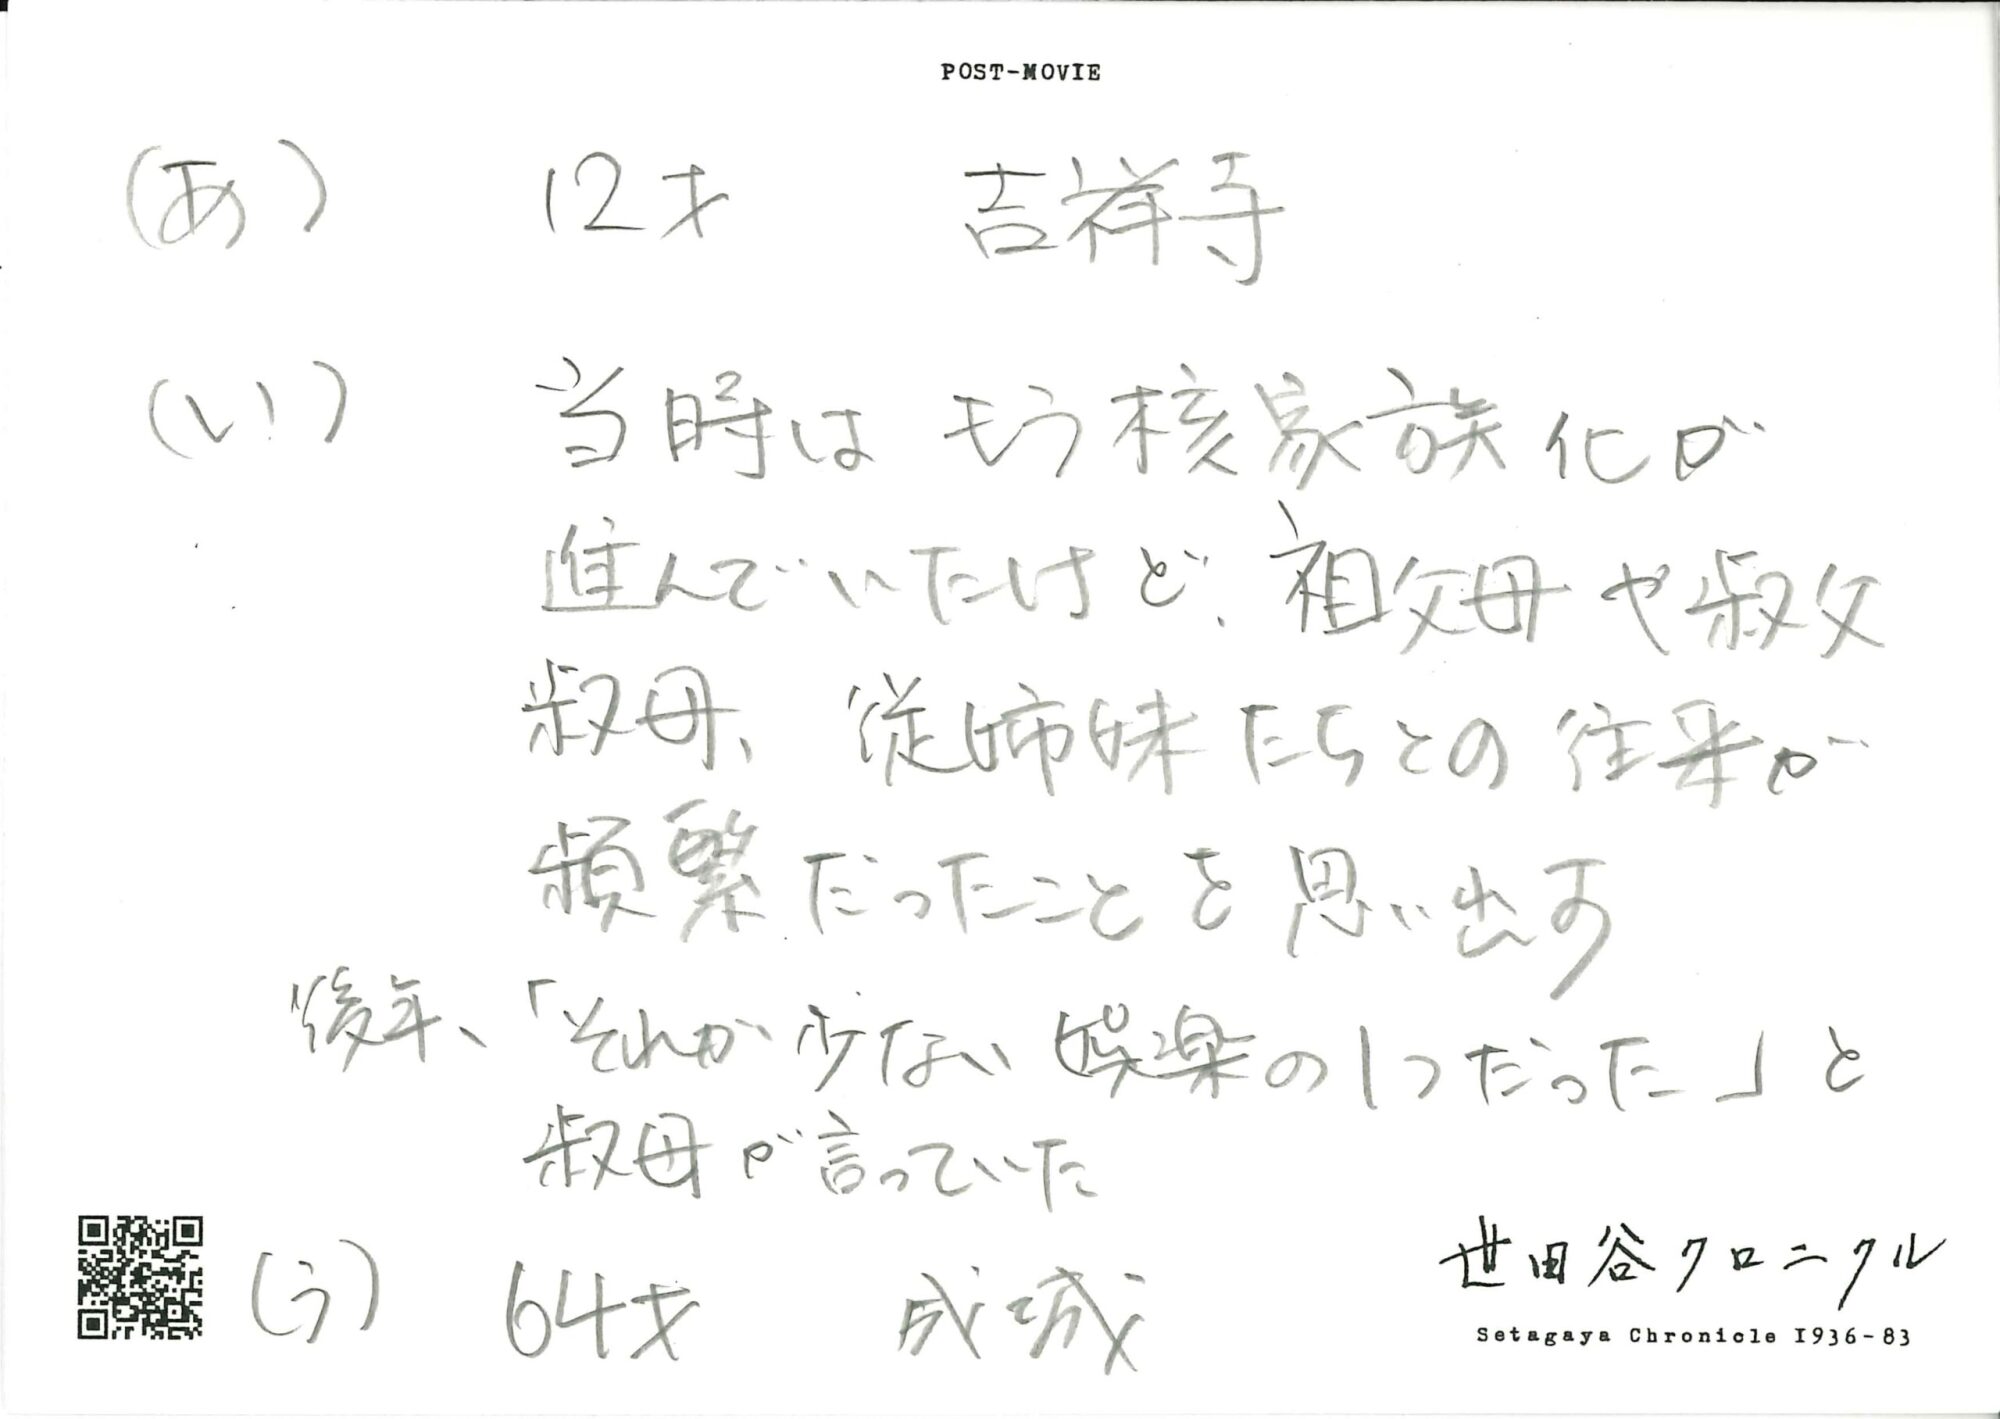 POST-MOVIE
(あ) 12才 吉祥寺
(い) 当時は もう核家族化が
進んでいたけど、祖父母や叔父
叔母、従姉妹たちとの往来が
頻繁だったことを思い出す
後年、「それが少ない娯楽の1つだった」と
叔母が言っていた
(う) 64才 成城
世田谷クロニクル
Setagaya Chronicle 1936-83